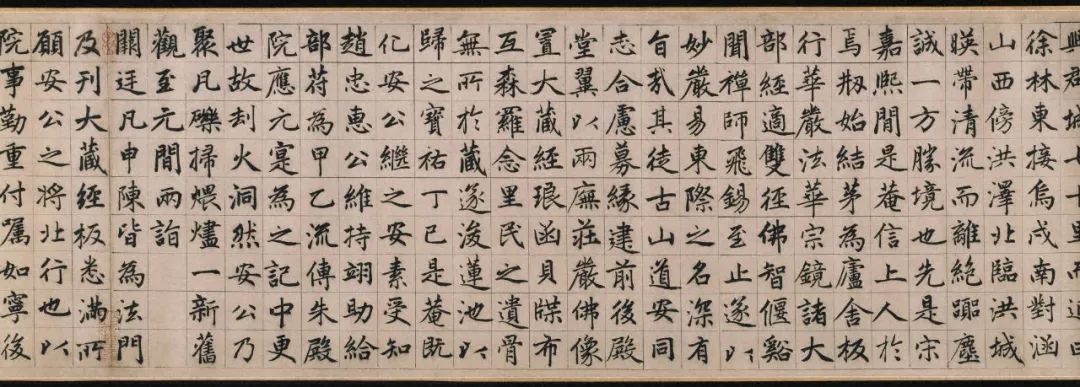 興君城七十里而近曰
徐林東接烏戍南對涵
山西傍洪澤北臨洪城
暎帶清流而離絕躢塵
誠一方勝境也先是宋
嘉熙間是菴信上人於
焉刱始結茅為廬舍板
行華嚴法華宗鏡諸大
部經適雙徑佛智偃谿
聞禪師飛錫至止遂以
妙嚴易東際之名深有
旨哉其徒古山道安同
志合慮募緣建前後殿
堂翼以兩廡莊嚴佛像
置大藏經琅函貝牒布
互森羅念里民之遺骨
無所於藏遂浚蓮池以
歸之寶祐丁巳是菴既
化安公繼之安素受知
趙忠惠公維持翊助給
部苻為甲乙流傳朱殿
院應元寔為之記中更
世故刦火洞然安公乃
聚凡礫掃煨燼一新舊
觀至元間兩詣
闕廷凡申陳皆為法門
及刊大藏經板悉滿所
願安公之將北行也以
院事勤重付囑如寧後